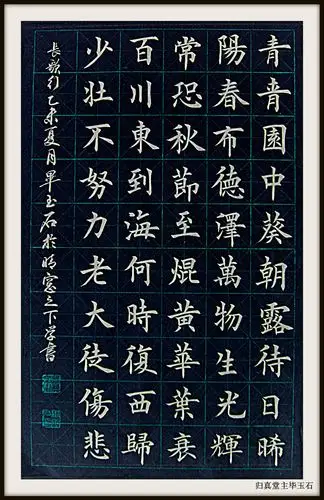 青青園中葵朝露待日晞
陽春布德澤萬物生光輝
常恐秋節至焜黃華葉衰
百川東到海何時復西歸
少壯不努力老大徒傷悲
長歌行乙未夏月畢玉石於晴窓之下學書
归真堂主毕玉石